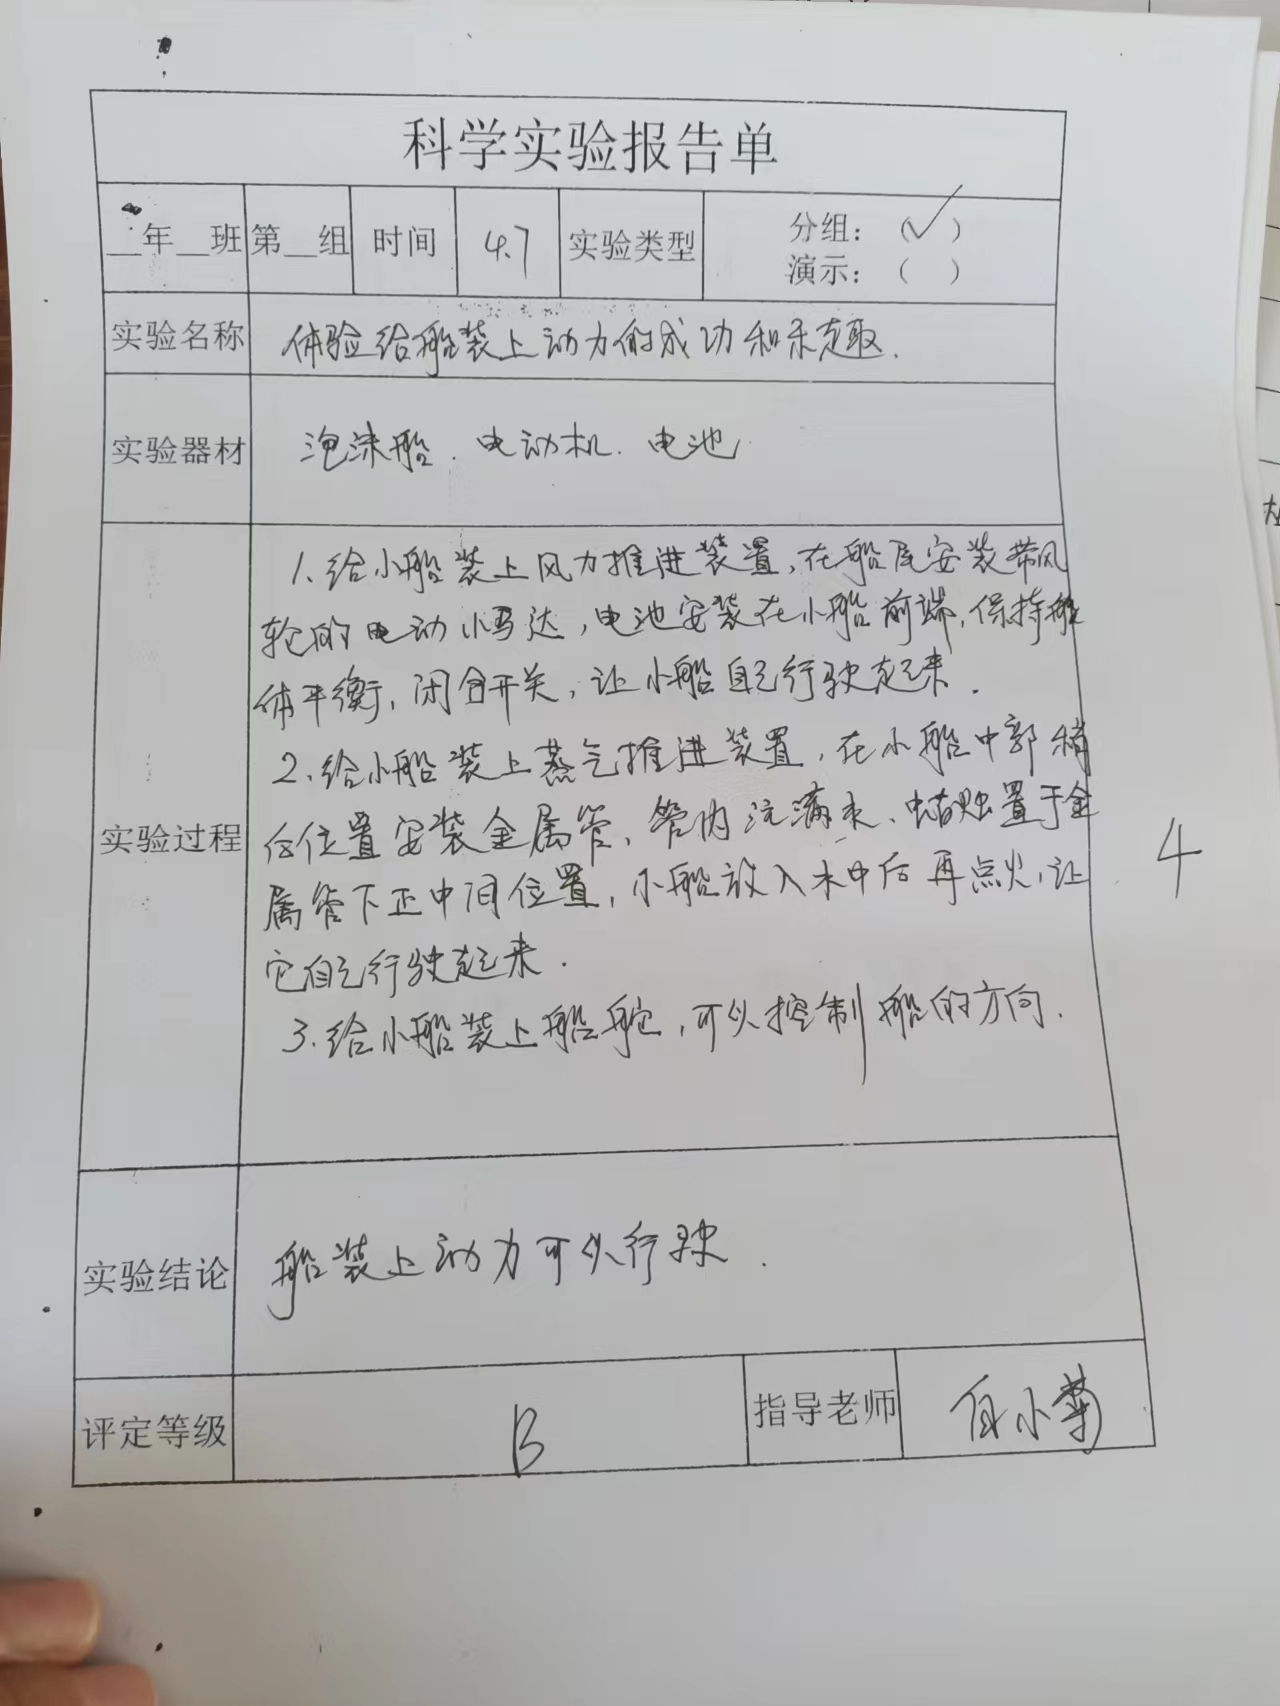 科学实验报告单
__年__班 第__组 时间 4.7 实验类型 分组：（✓）
演示：（ ）
实验名称 体验给船装上动力的成功和乐趣.
实验器材 泡沫船. 电动机. 电池
实验过程
1、给小船装上风力推进装置，在船尾安装带风
轮的电动小马达，电池安装在小船前端，保持船
体平衡，闭合开关，让小船自己行驶起来.
2、给小船装上蒸气推进装置，在小船中部稍
后位置安装金属管，管内注满水、蜡烛置于金
属管下正中间位置，小船放入水中后再点火，让
它自己行驶起来.
3、给小船装上船舵，可以控制船的方向.
4
实验结论 船装上动力可以行驶.
评定等级 B 指导老师 小菊